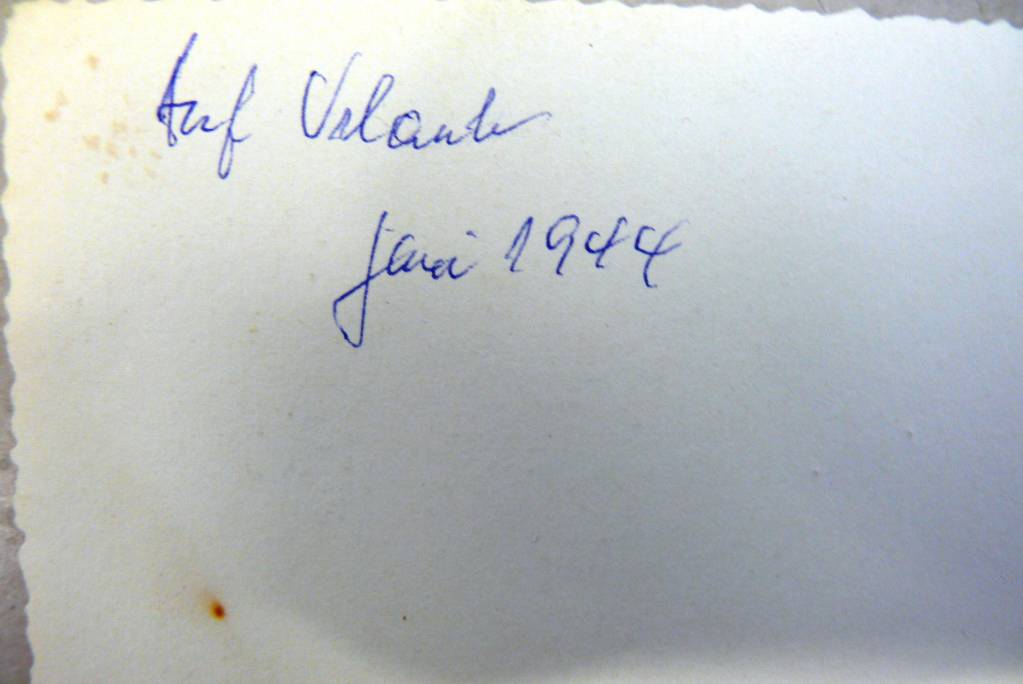 Auf Urlaub
Juni 1944